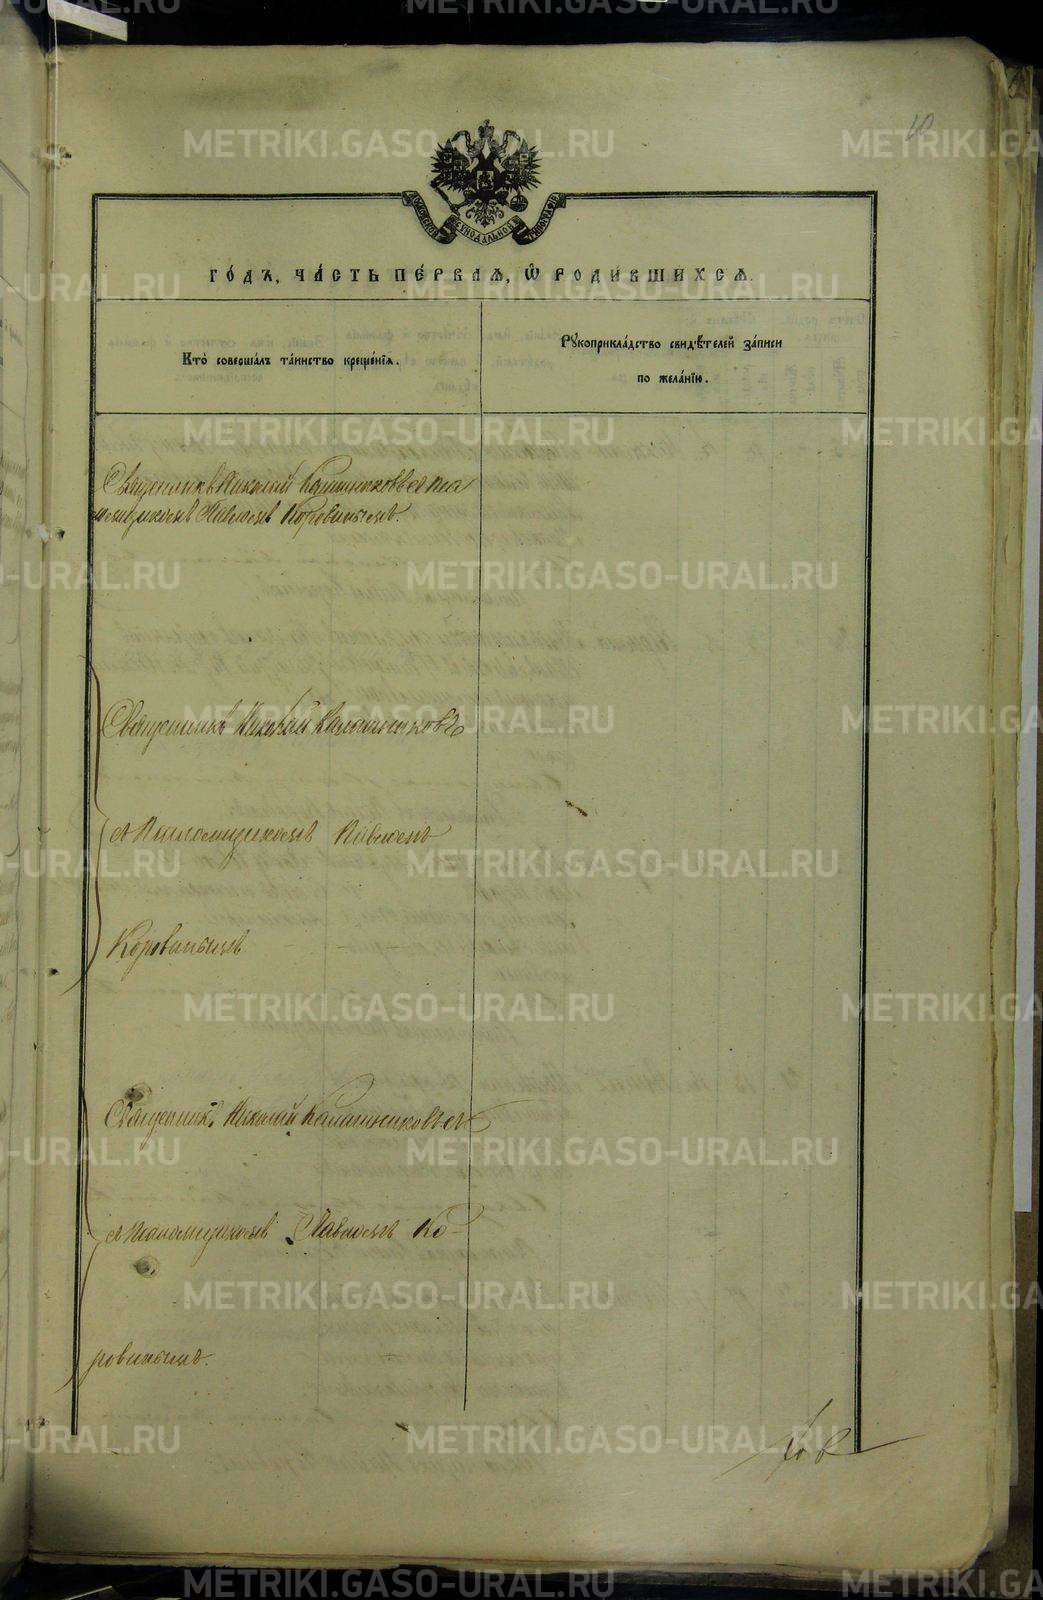 10
МОСКОВСКОЙ СѴНОДАЛЬНОЙ ТѴПОГРАФІИ
ГО́ДЪ, ЧА́СТЬ ПЕ́РВАѦ, Ѡ҆ РОДИ́ВШИХСѦ.
Кто̀ соверша́лъ та́инство креще́нїѧ.
Рꙋкоприкла́дство свидѣ́телей за́писи
по жела́нїю.
Священникъ Николай Калашниковъ съ пса
ломщикомъ Павломъ Коровинымъ.
Священникъ Николай Калашниковъ
съ псаломщикомъ Павломъ
Коровинымъ
Священникъ Николай Калашниковъ съ
съ псаломщикомъ Павломъ Ко-
ровинымъ.
METRIKI.GASO-URAL.RU